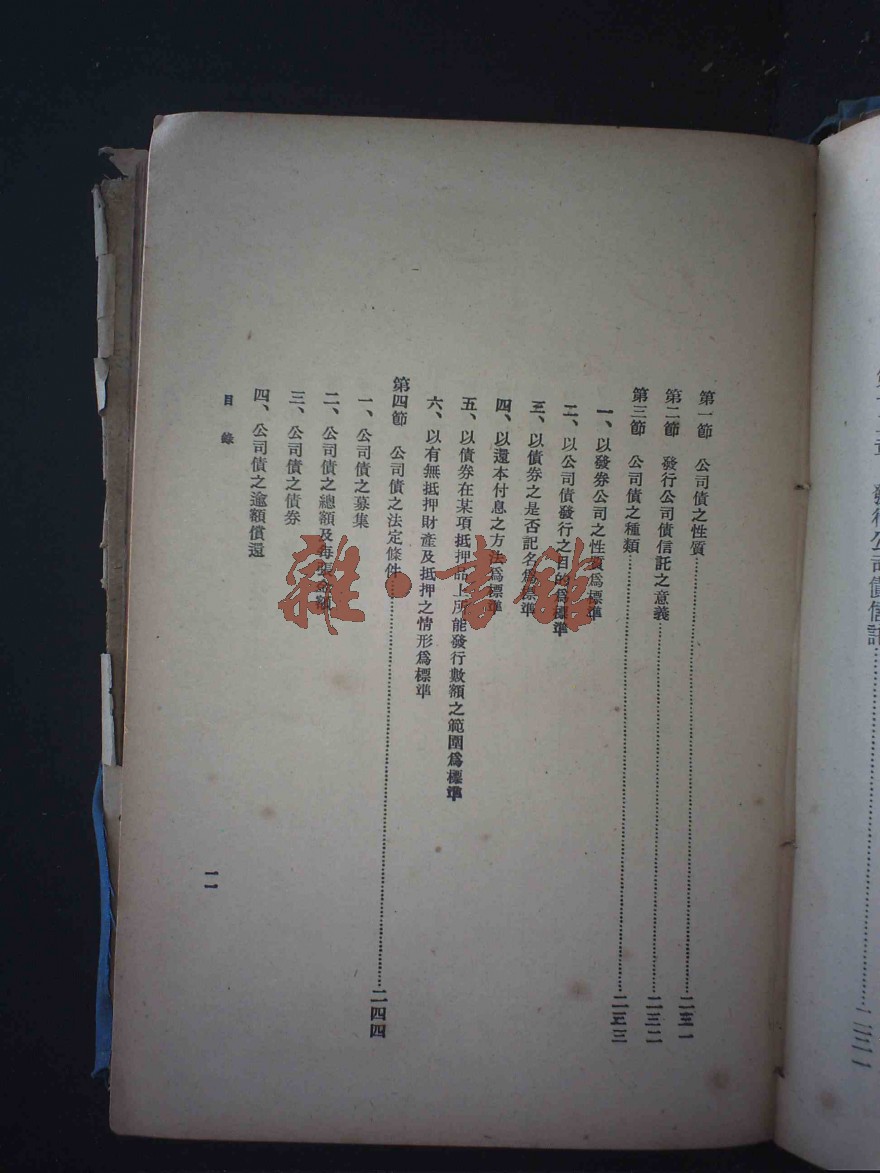 發行公司債信託……二三一
第一節　公司債之性質……二三一
第二節　發行公司債信託之意義……二三二
第三節　公司債之種類……二三三
一、以發券公司之性質為標準
二、以公司債發行之目的為標準
三、以債券之是否記名為標準
四、以還本付息之方法為標準
五、以債券在某項抵押品上所能發行數額之範圍為標準
六、以有無抵押財產及抵押之情形為標準
第四節　公司債之法定條件……二四四
一、公司債之募集
二、公司債之總額及每張金額
三、公司債之債券
四、公司債之逾額償還
目錄
一一
雜·書館